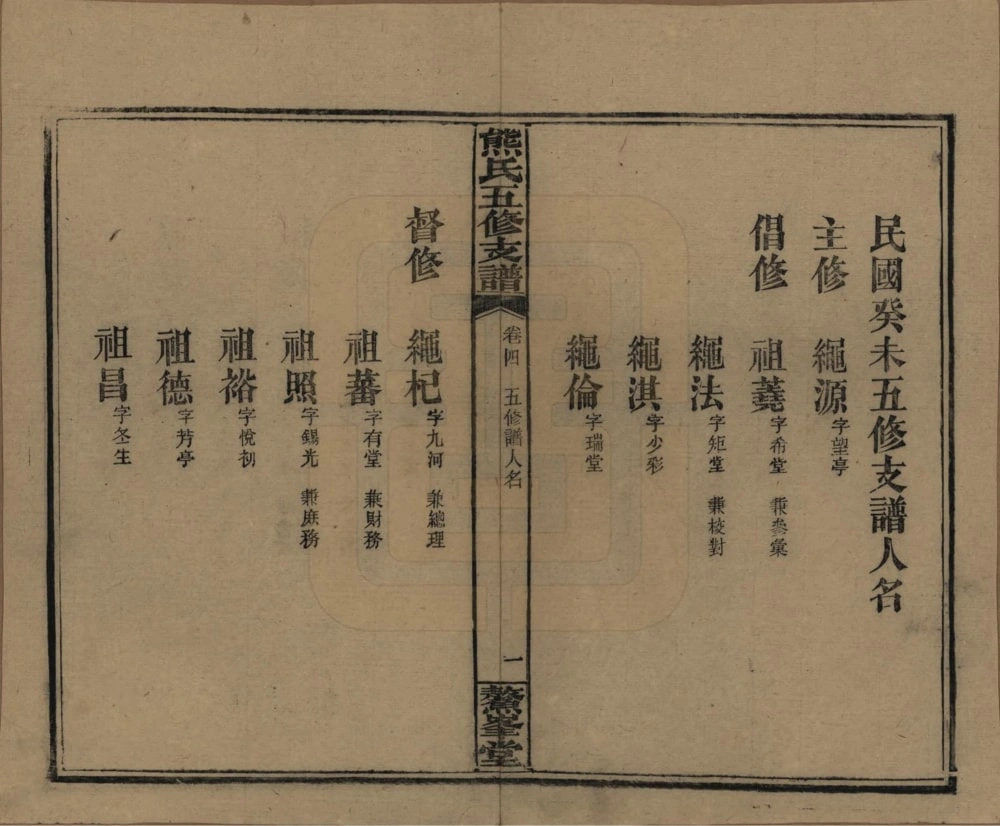 民國癸未五修支譜人名
主修 繩源字望亭
倡修 祖蕘字希堂 兼參彙
繩法字矩堂 兼校對
繩淇字少彩
繩倫字瑞堂
熊氏五修支譜 卷四 五修譜人名 一 鰲峯堂
督修 繩杞字九河 兼總理
祖蕃字有堂 兼財務
祖照字錫光 兼庶務
祖裕字悅初
祖德字芳亭
祖昌字冬生